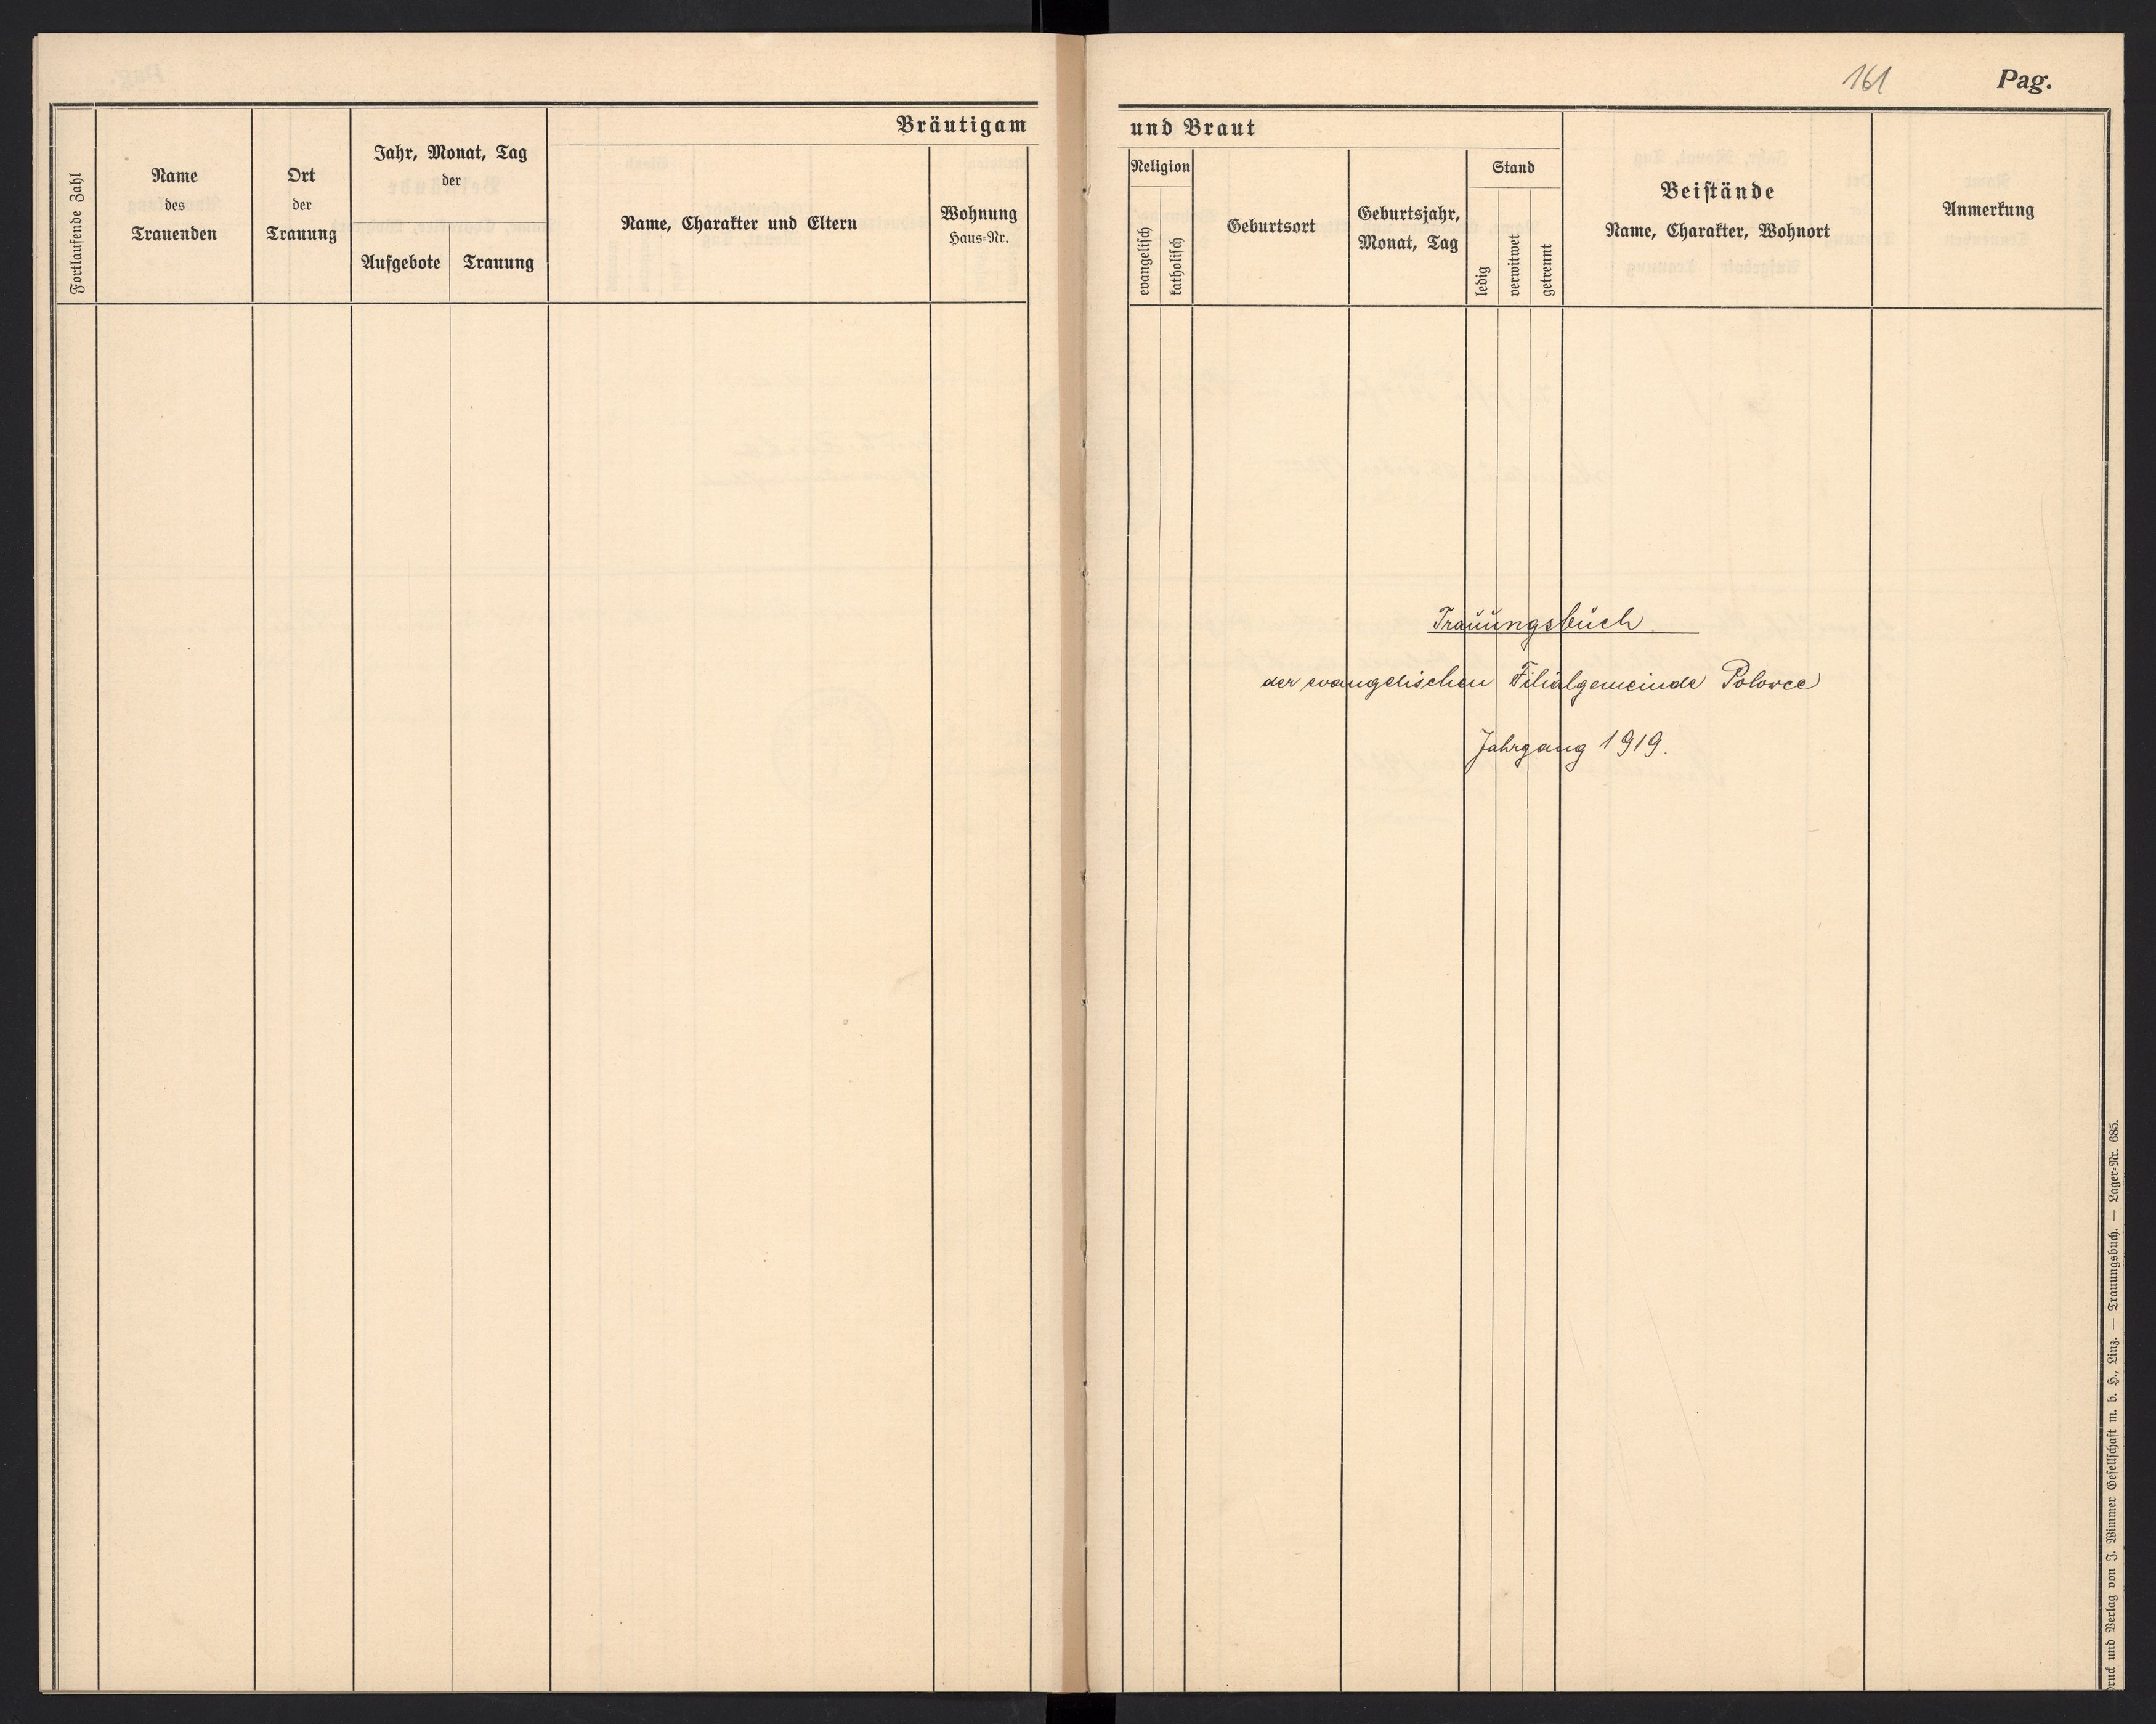 161
Pag.
Bräutigam
und Braut
Fortlaufende Zahl
Name
des
Trauenden
Ort
der
Trauung
Jahr, Monat, Tag
der
Aufgebote
Trauung
Name, Charakter und Eltern
Wohnung
Haus-Nr.
Religion
evangelisch
katholisch
Geburtsort
Geburtsjahr,
Monat, Tag
Stand
ledig
verwitwet
getrennt
Beistände
Name, Charakter, Wohnort
Anmerkung
Trauungsbuch
der evangelischen Filialgemeinde Polowce
Jahrgang 1919.
und Verlag von J. Wimmer Gesellschaft m. b. H., Linz. — Trauungsbuch. — Lager-Nr. 685.